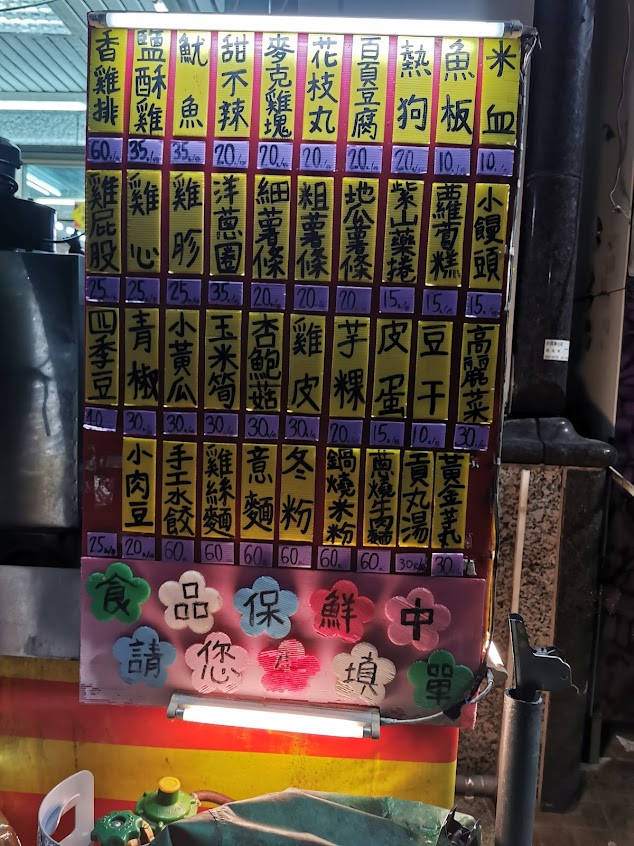 香雞排 鹽酥雞 魷魚 甜不辣 麥克雞塊 花枝丸 百頁豆腐 熱狗 魚板 米血
60 35 35 20 20 20 20 20 10 10
雞屁股 雞心 雞胗 洋蔥圈 細薯條 粗薯條 地瓜薯條 紫山藥捲 蘿蔔糕 小饅頭
25 25 25 35 20 20 20 15 15 15
四季豆 青椒 小黃瓜 玉米筍 杏鮑菇 雞皮 芋粿 皮蛋 豆干 高麗菜
40 30 30 30 30 30 20 15 10 30
小肉豆 手工水餃 雞絲麵 意麵 冬粉 鍋燒米粉 蔥燒牛肉麵 貢丸湯 黃金芋丸
25 20 60 60 60 60 60 60 30 30
食品保鮮中
請您 填單